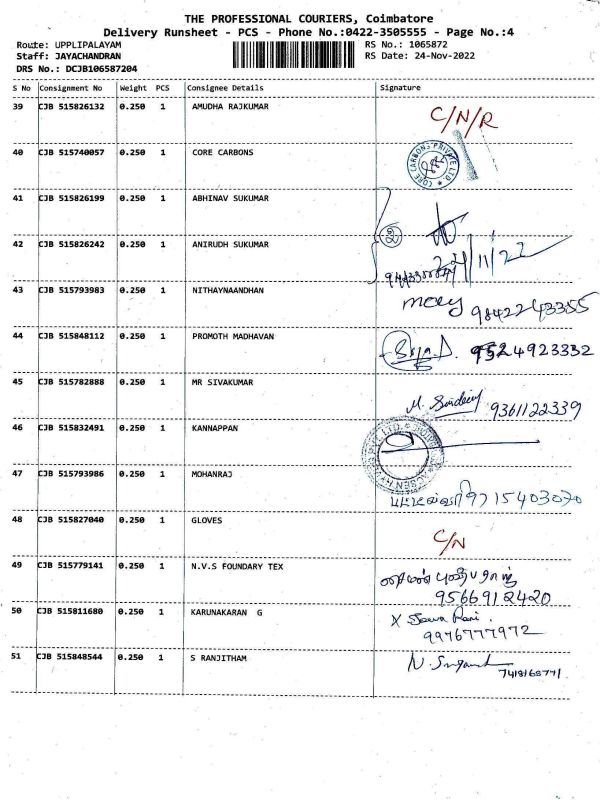 THE PROFESSIONAL COURIERS, Coimbatore
Delivery Runsheet - PCS - Phone No.:0422-3505555 - Page No.:4
Route: UPPLIPALAYAM RS No.: 1065872
Staff: JAYACHANDRAN RS Date: 24-Nov-2022
DRS No.: DCJB106587204
S No Consignment No Weight PCS Consignee Details Signature
39 CJB 515826132 0.250 1 AMUDHA RAJKUMAR C/N/R
40 CJB 515740057 0.250 1 CORE CARBONS CORE CARBONS PRIVATE LTD.
41 CJB 515826199 0.250 1 ABHINAV SUKUMAR
42 CJB 515826242 0.250 1 ANIRUDH SUKUMAR 24/11/22
43 CJB 515793983 0.250 1 NITHAYNAANDHAN 9842243355
44 CJB 515848112 0.250 1 PROMOTH MADHAVAN 9524923332
45 CJB 515782888 0.250 1 MR SIVAKUMAR 9361122339
46 CJB 515832491 0.250 1 KANNAPPAN
47 CJB 515793986 0.250 1 MOHANRAJ 9715403070
48 CJB 515827040 0.250 1 GLOVES C/N
49 CJB 515779141 0.250 1 N.V.S FOUNDARY TEX
9566912420
50 CJB 515811680 0.250 1 KARUNAKARAN G X Rani.
9976777972
51 CJB 515848544 0.250 1 S RANJITHAM 7418168771